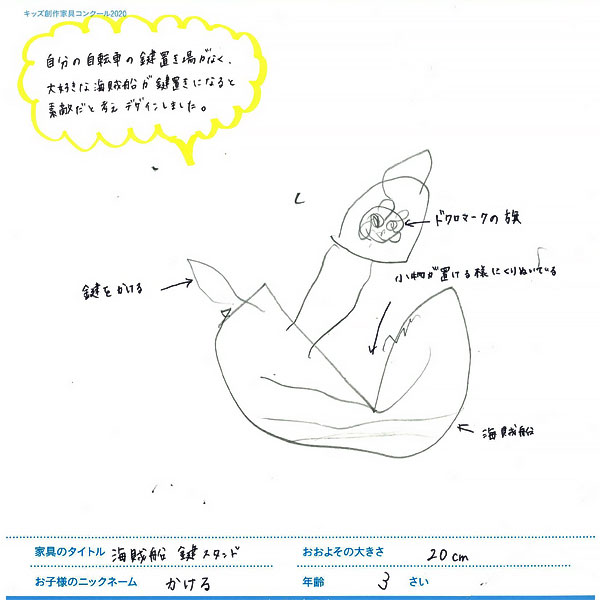 キッズ創作家具コンクール2020
自分の自転車の鍵置き場がなく、
大好きな海賊船が鍵置きになると
素敵だと考えデザインしました。
ドクロマークの旗
小物が置ける様にくりぬいている
鍵をかける
海賊船
家具のタイトル 海賊船 鍵スタンド おおよその大きさ 20cm
お子様のニックネーム かける 年齢 3 さい